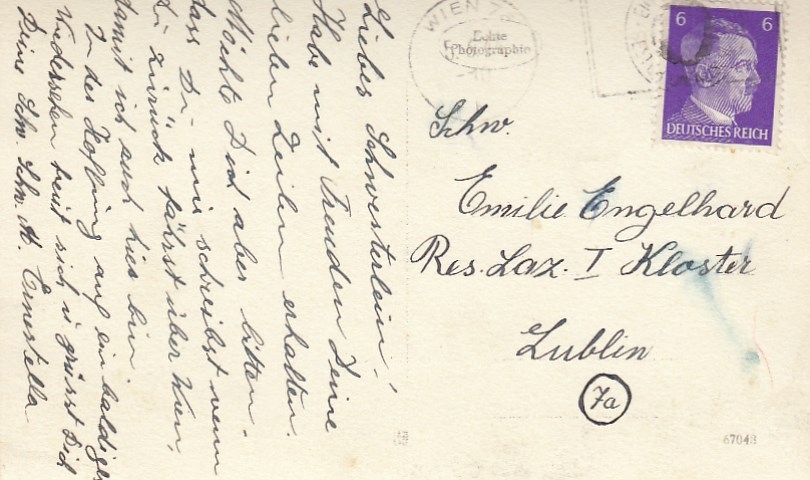 Liebes Schwesterlein!
Habe mit Freuden Deine
lieben Zeilen erhalten.
Möchte Dich aber bitten.
dass Du mir schreibst wenn
Du zurück fährst über Wien,
damit ich auch hier bin.
In der Hoffnung auf ein baldiges
Wiedersehen freut sich u. grüsst Dich
Deine Schw. Schw. M. Ernestella
WIEN 7
Echte
Photographie
6 6
DEUTSCHES REICH
Schw.
Emilie Engelhard
Res. Laz. I Kloster
Lublin
7a
67043